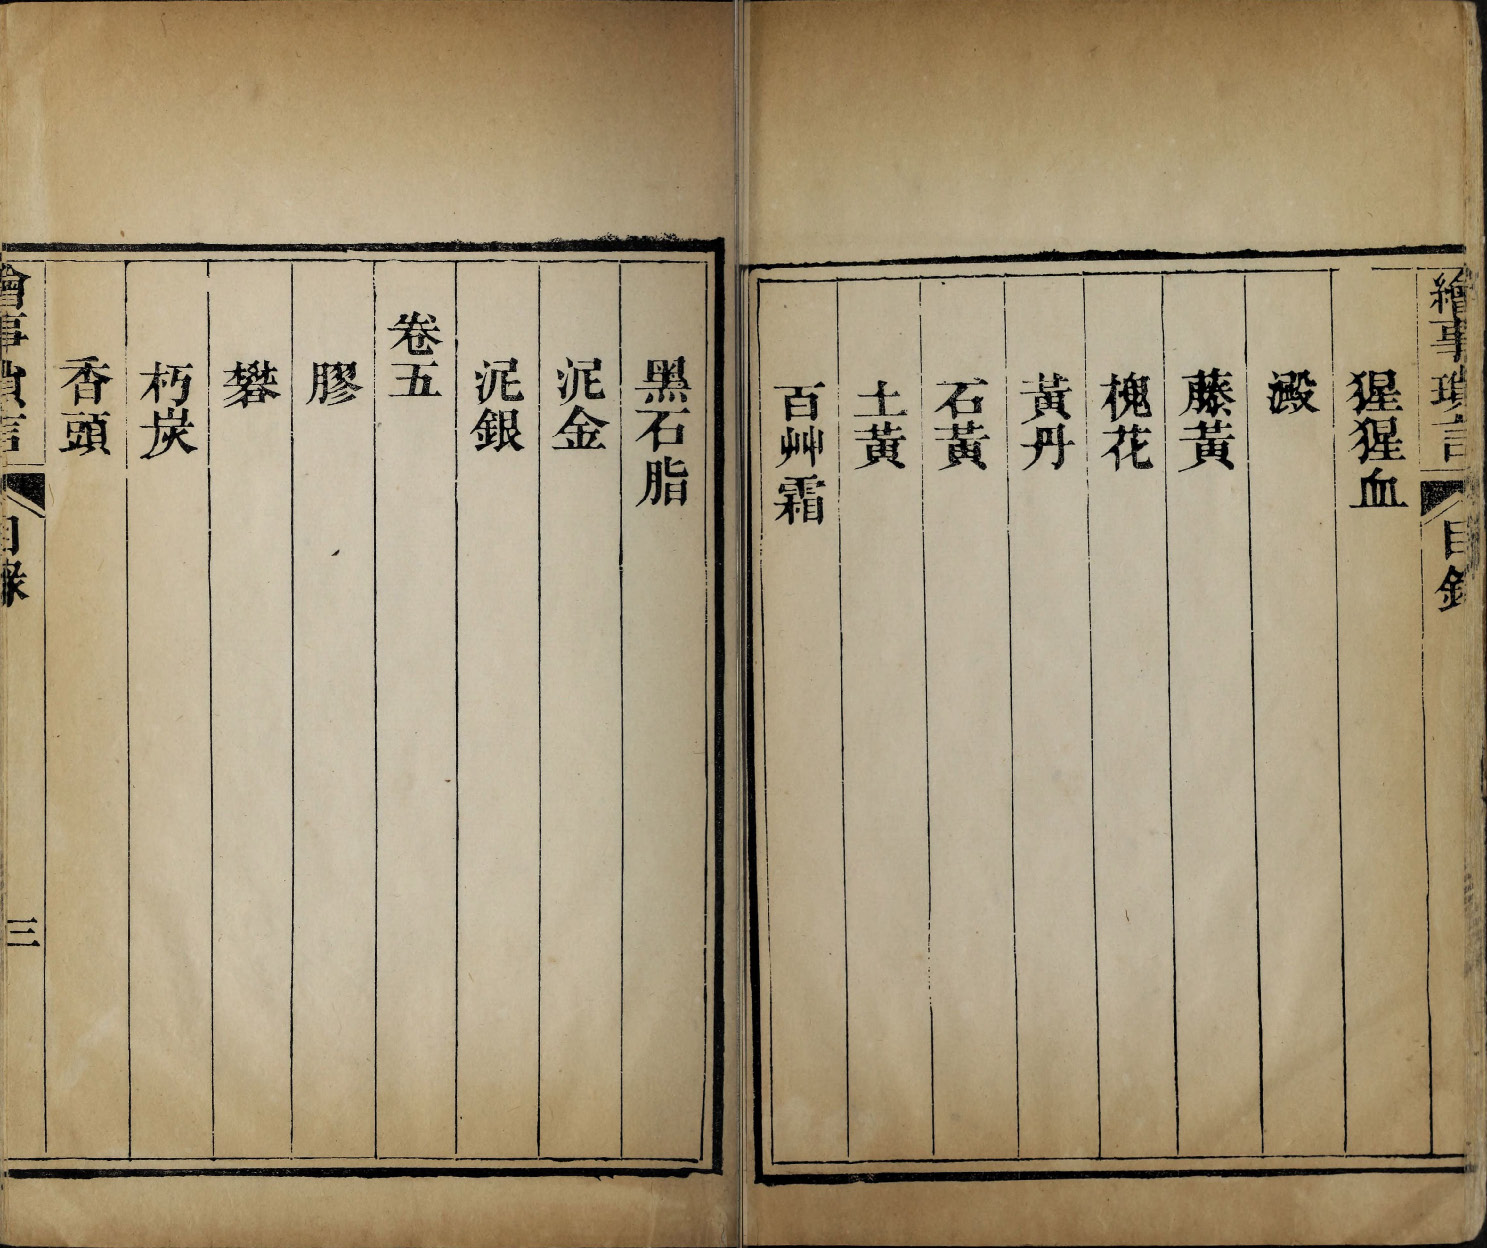 繪事瑣言 目錄
猩猩血
澱
藤黃
槐花
黃丹
石黃
土黃
百艸霜
黑石脂
泥金
泥銀
卷五
膠
礬
朽炭
香頭
繪事瑣言 目錄 三